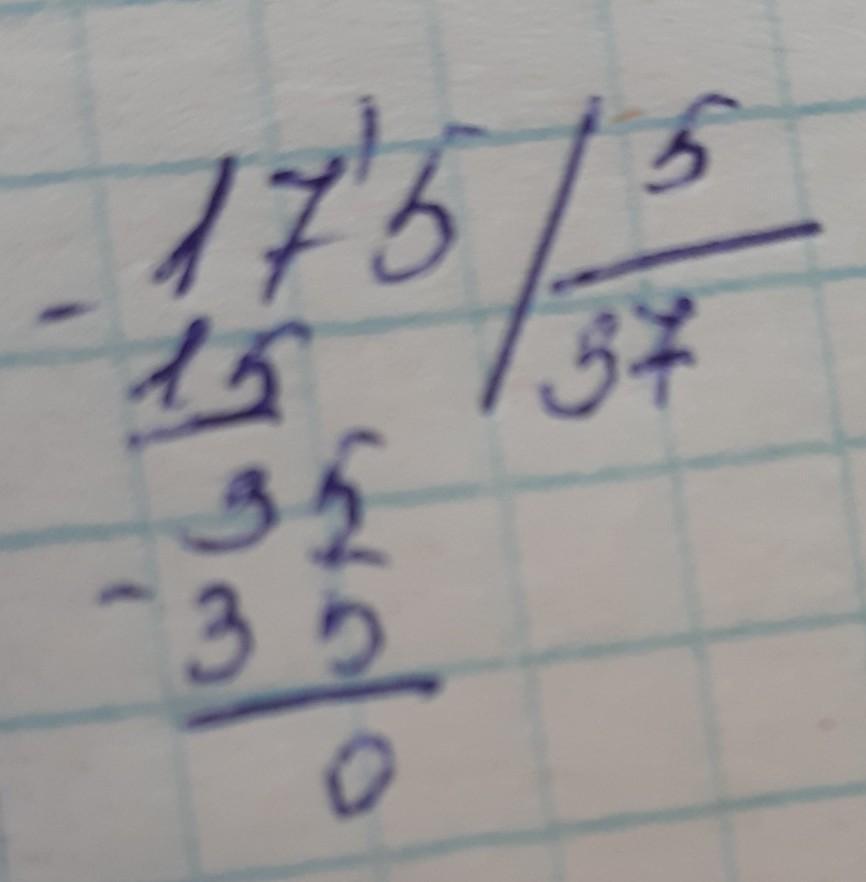 17'5 / 5
- 15 37
35
- 35
0